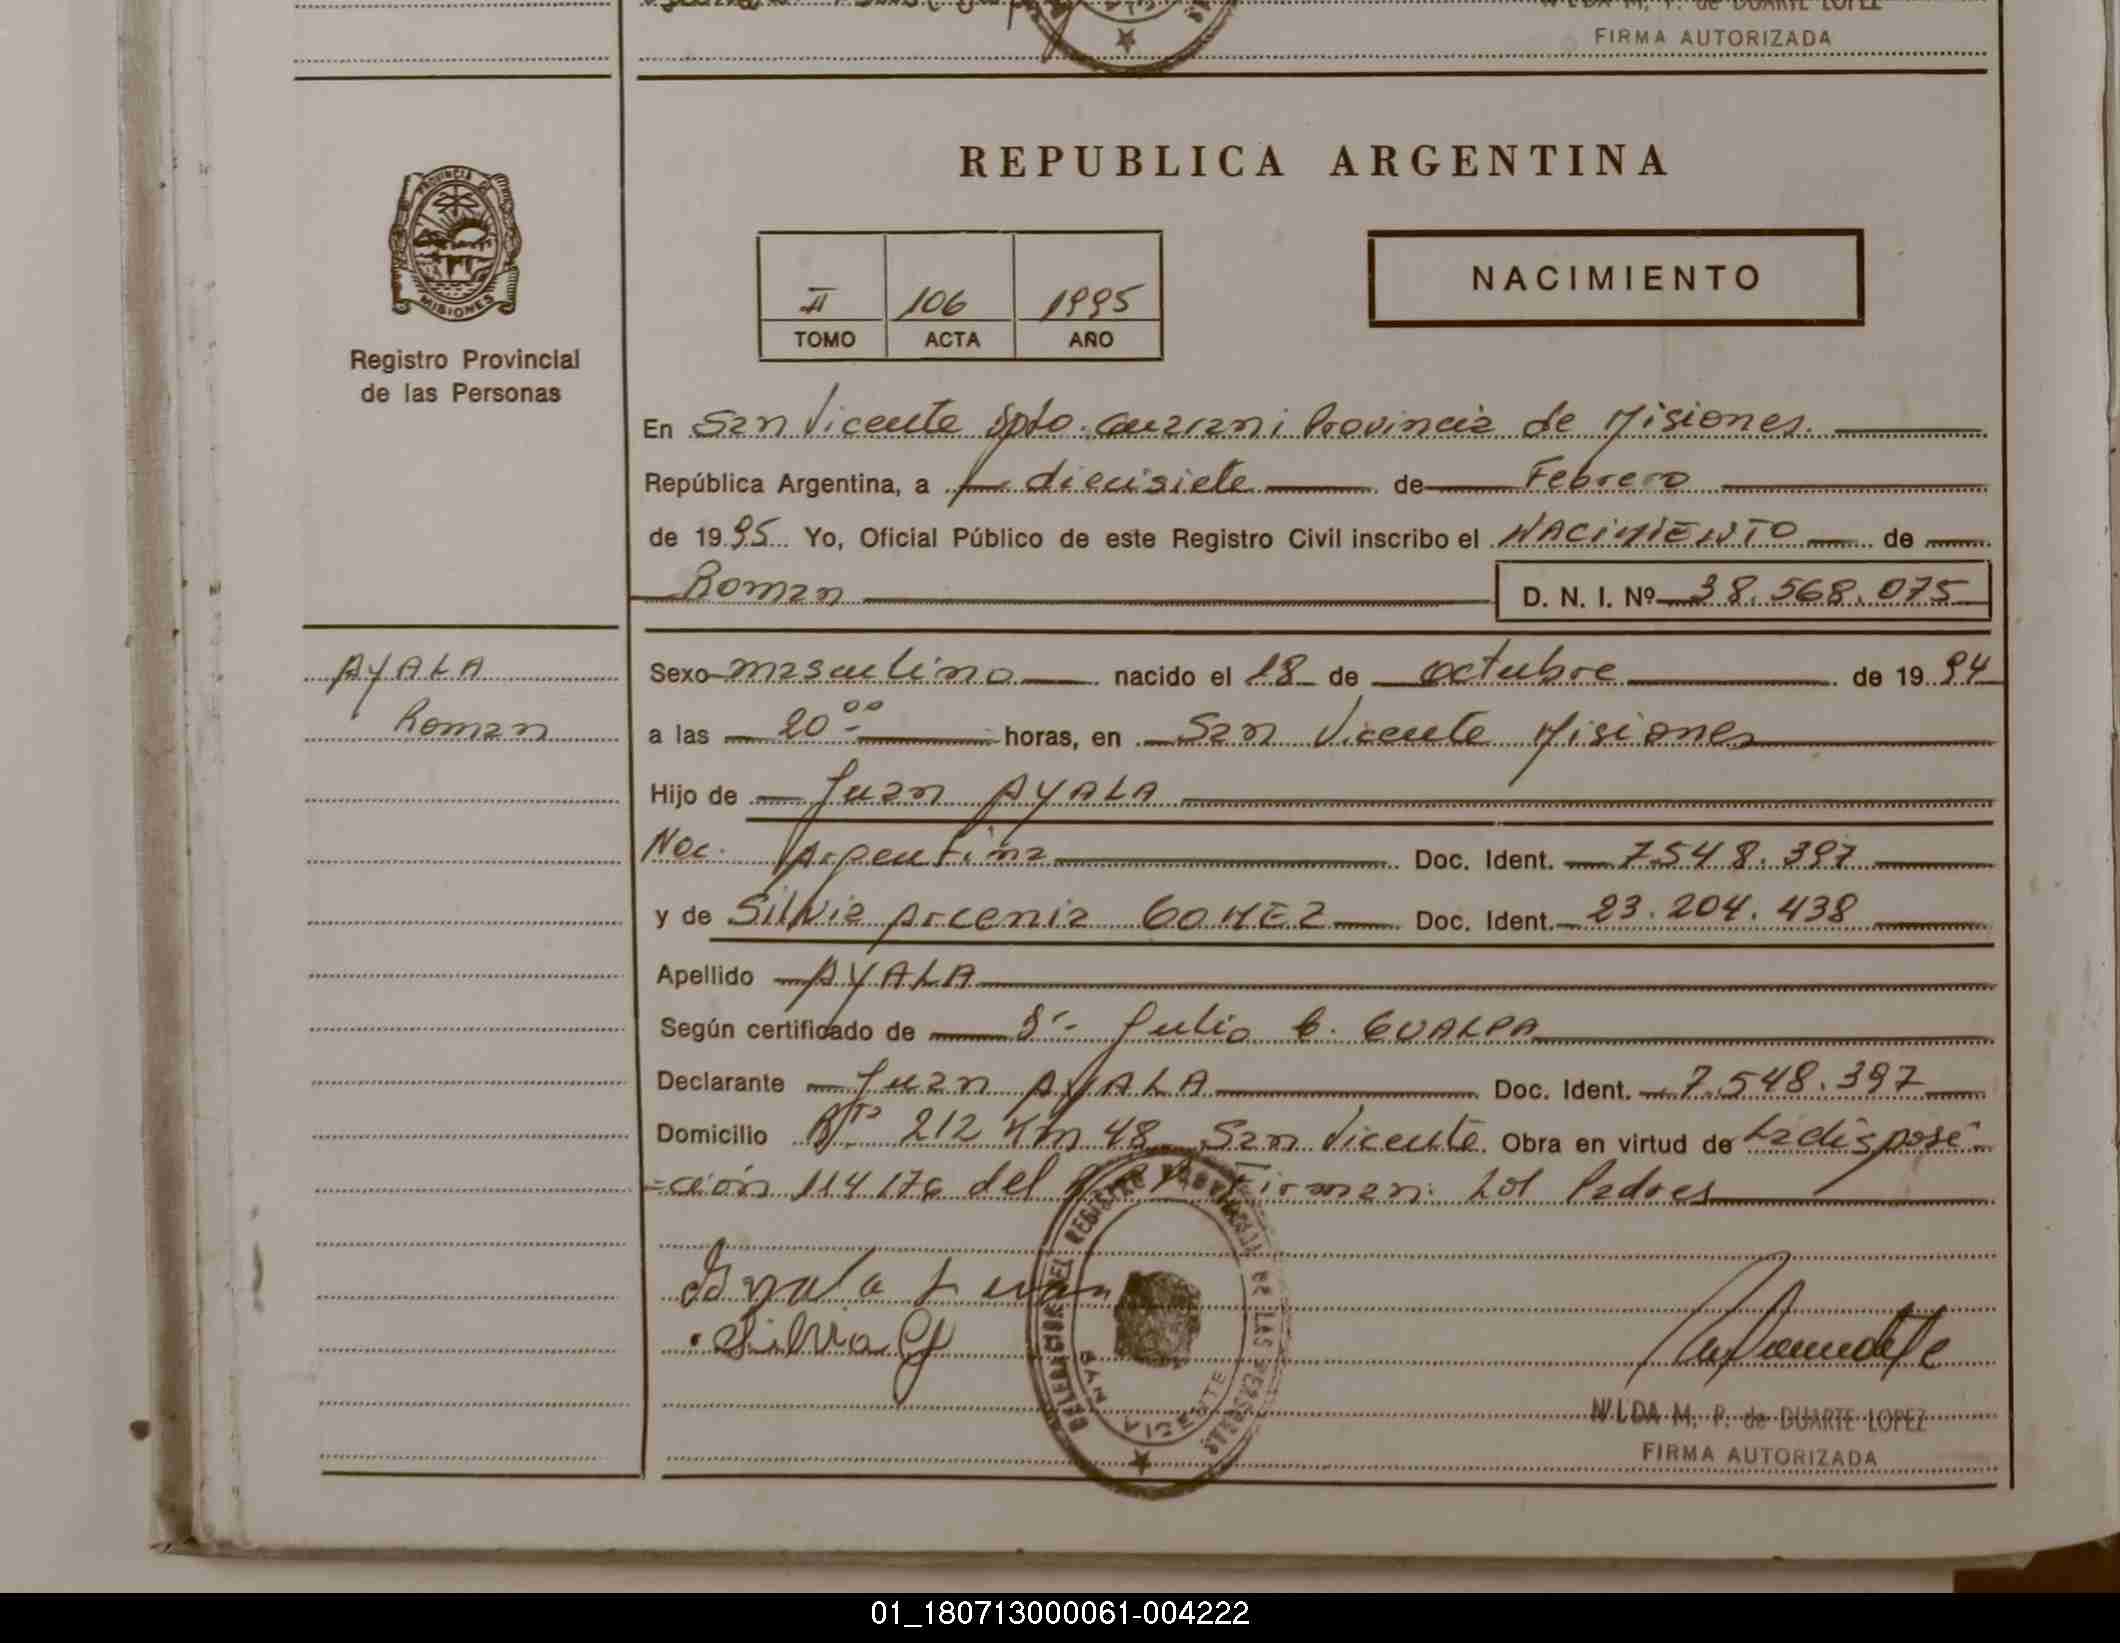 WILDA M. P. de DUARTE LOPEZ
FIRMA AUTORIZADA
PROVINCIA DE
MISIONES
Registro Provincial
de las Personas
REPUBLICA ARGENTINA
II 106 1995
TOMO ACTA AÑO
NACIMIENTO
En San Vicente Dpto. Guarani Provincia de Misiones.
República Argentina, a diecisiete de Febrero
de 1995 Yo, Oficial Público de este Registro Civil inscribo el NACIMIENTO de
Roman D. N. I. Nº 38.568.075
AYALA
Roman
Sexo masculino nacido el 18 de octubre de 1994
a las 20⁰⁰ horas, en San Vicente Misiones
Hijo de Juan AYALA
Nac. Argentina Doc. Ident. 7.548.397
y de Silvia Arcenia GOMEZ Doc. Ident. 23.204.438
Apellido AYALA
Según certificado de Dr. Julio C. GUALPA
Declarante Juan AYALA Doc. Ident. 7.548.397
Domicilio Rta 212 Km 48 San Vicente. Obra en virtud de La disposi
=ción 114176 del Firman: Los Padres
Ayala Juan
Silvia G
DELEGACION DEL REGISTRO PROVINCIAL DE LAS PERSONAS
SAN VICENTE
WILDA M. P. de DUARTE LOPEZ
FIRMA AUTORIZADA
01_180713000061-004222